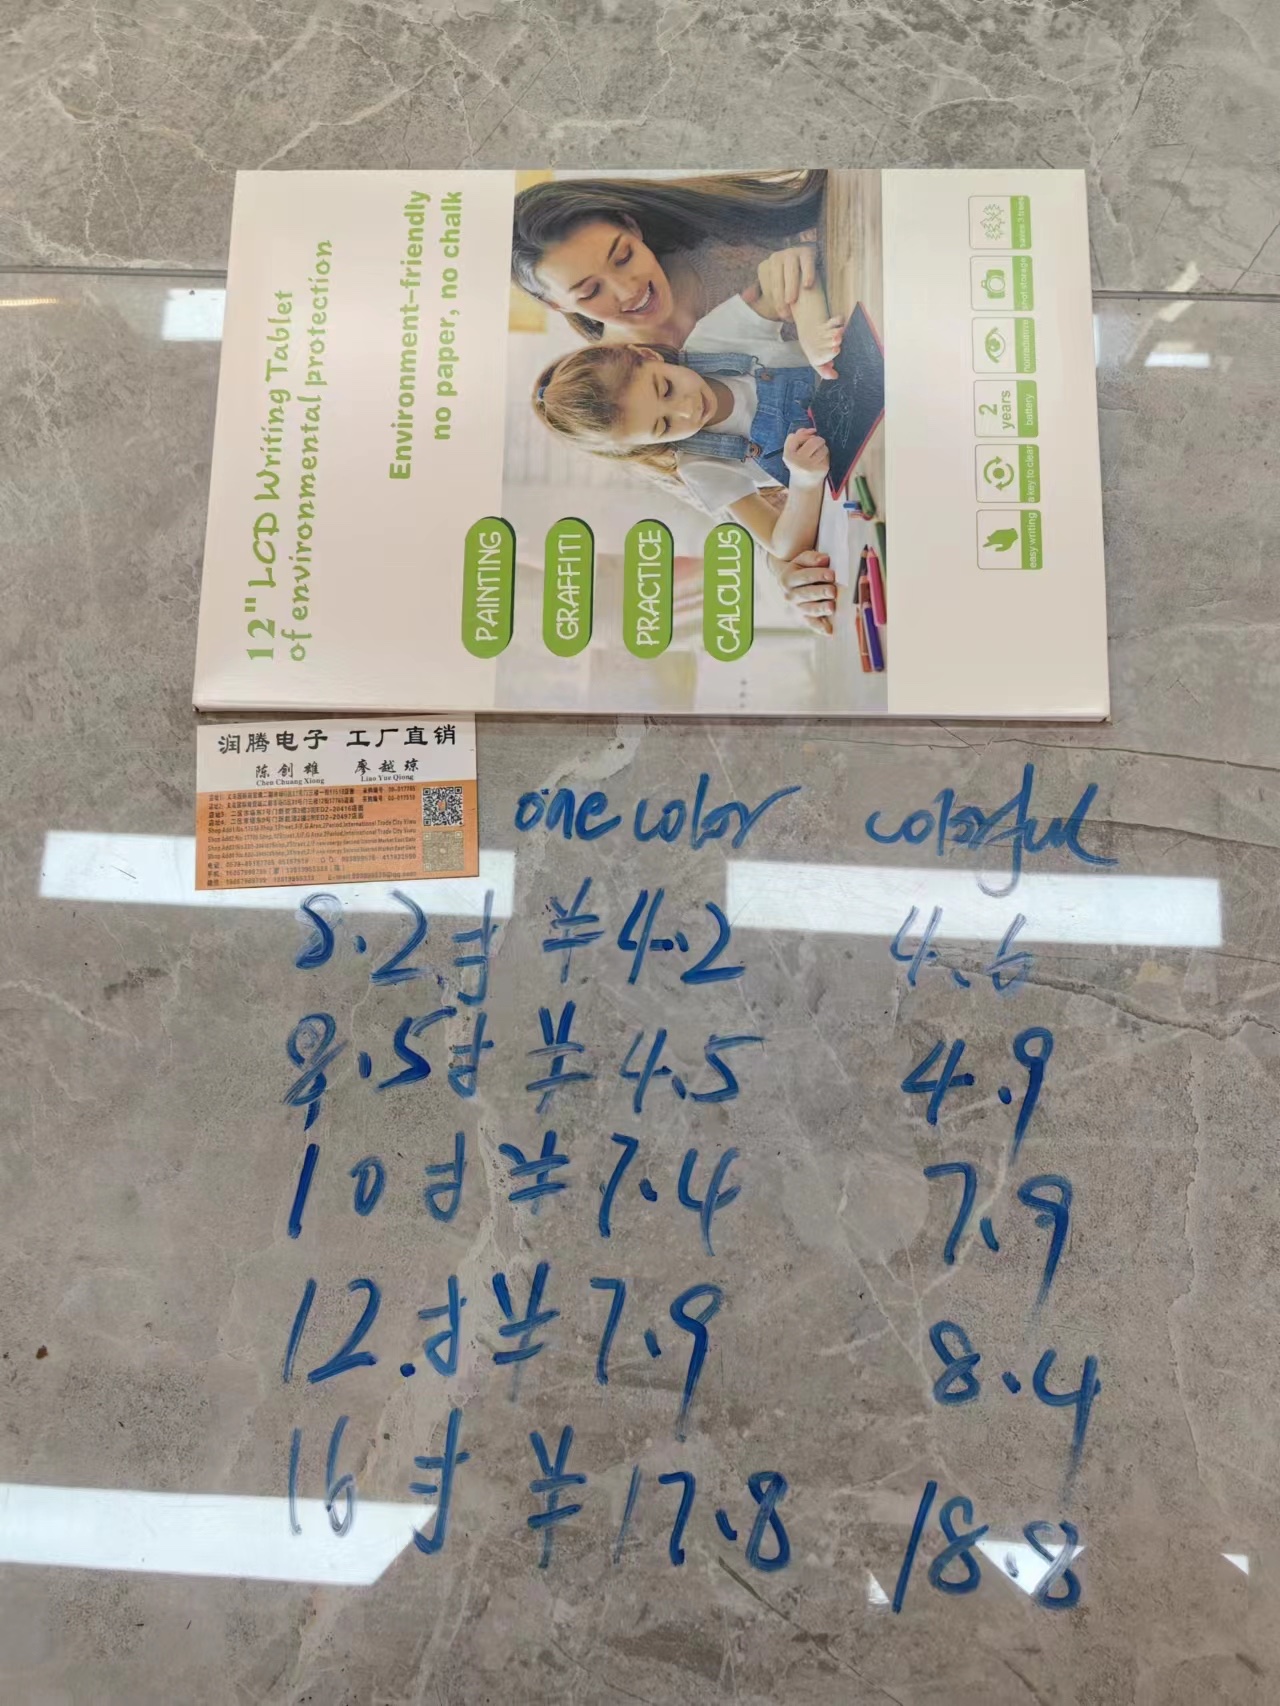 12" LCD Writing Tablet
of environmental protection
Environment-friendly
no paper, no chalk
PAINTING
GRAFFITI
PRACTICE
CALCULUS
easy writing
a key to clear
2 years
battery
nonradiative
shot storage
saves 3 trees
润腾电子 工厂直销
陈创雄 廖越琼
Chen Chuang Xiong Liao Yue Qiong
one color colorful
8.2寸 ¥4.2 4.6
8.5寸 ¥4.5 4.9
10寸 ¥7.4 7.9
12.寸 ¥7.9 8.4
16寸 ¥17.8 18.8